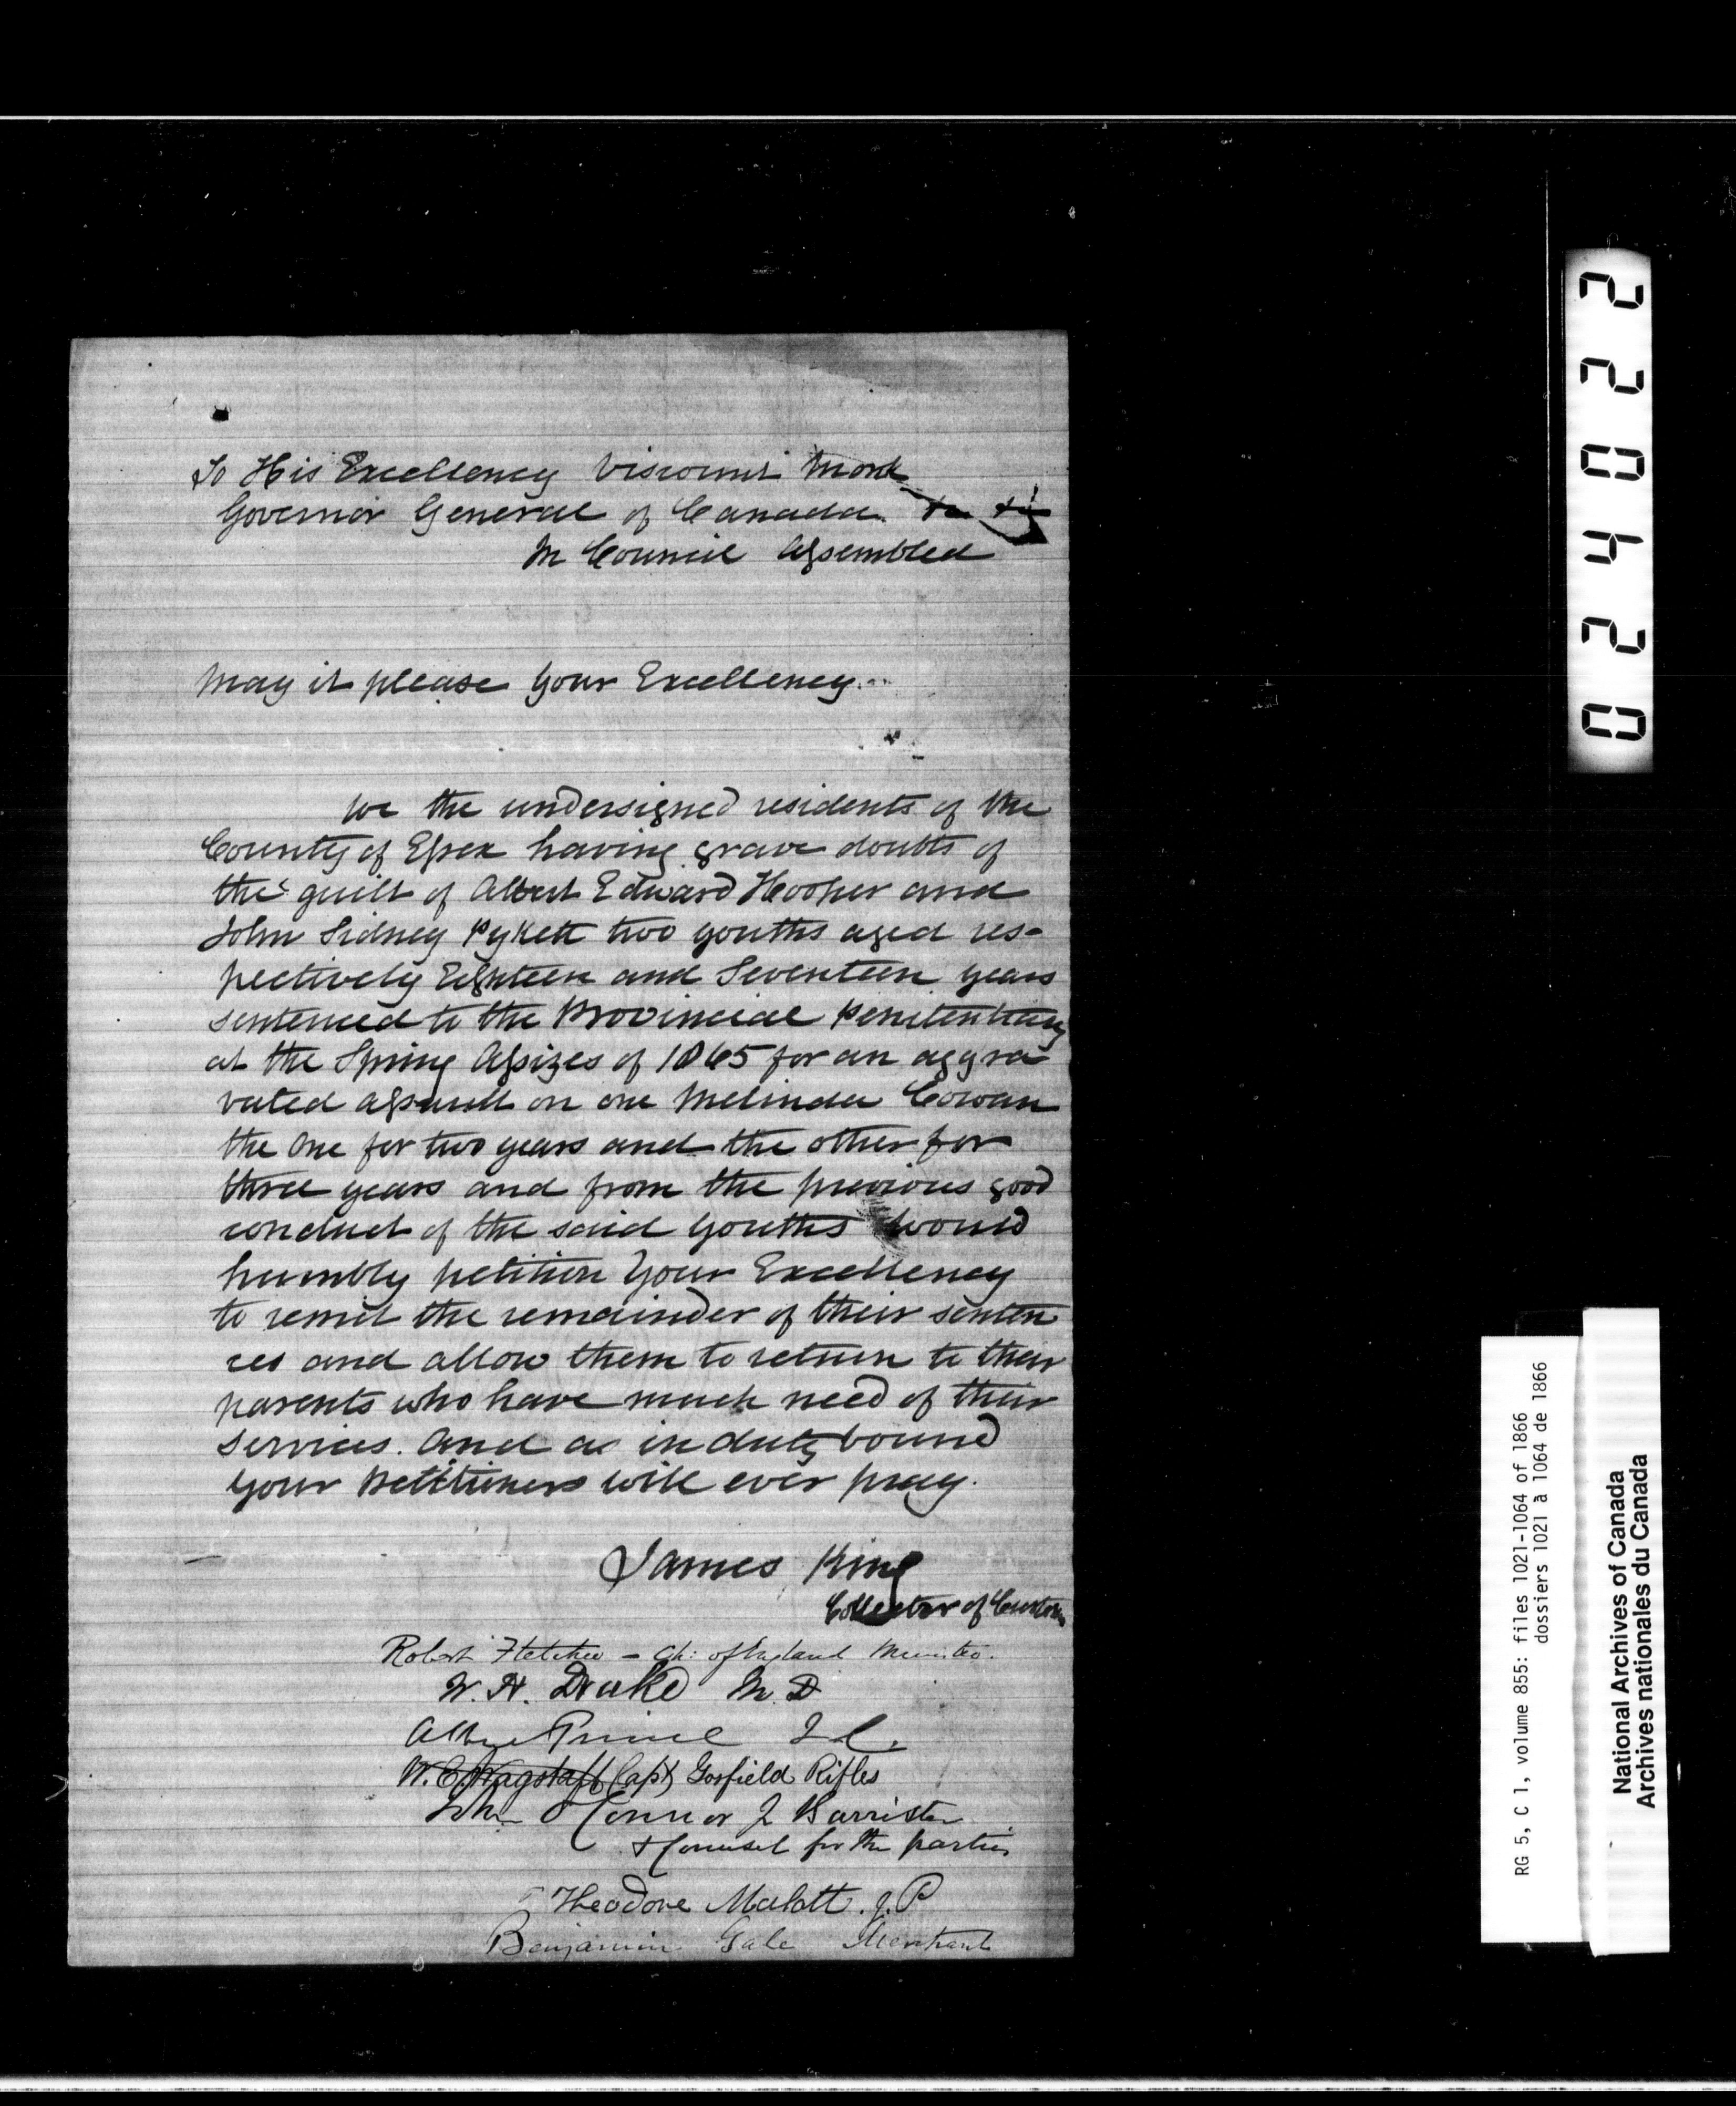 To His Excellency Viscount Monk
Governor General of Canada &c &c
In Council Assembled
May it please Your Excellency
We the undersigned residents of the
County of Essex having grave doubts of
the guilt of Albert Edward Hooper and
John Sidney Pykett two youths aged res-
pectively Eighteen and Seventeen years
sentenced to the Provincial Penitentiary
at the Spring Assizes of 1865 for an aggra
vated assault on one Melinda Cowan
the one for two years and the other for
three years and from the previous good
conduct of the said youths would
humbly petition Your Excellency
to remit the remainder of their senten
ces and allow them to return to their
parents who have much need of their
services. And as in duty bound
your Petitioners will ever pray.
James King
Collector of Customs
Robert Fletcher - Ch: of England
W. H. Drake M.D
Albert Prince
W. C. Wagstaff Capt Gosfield Rifles
John O'Connor J Barrister
& Counsel for the parties
Theodore Malott. J.P
Benjamin Gale Merchant
022420
RG 5, C 1, volume 855: files 1021-1064 of 1866
dossiers 1021 à 1064 de 1866
National Archives of Canada
Archives nationales du Canada